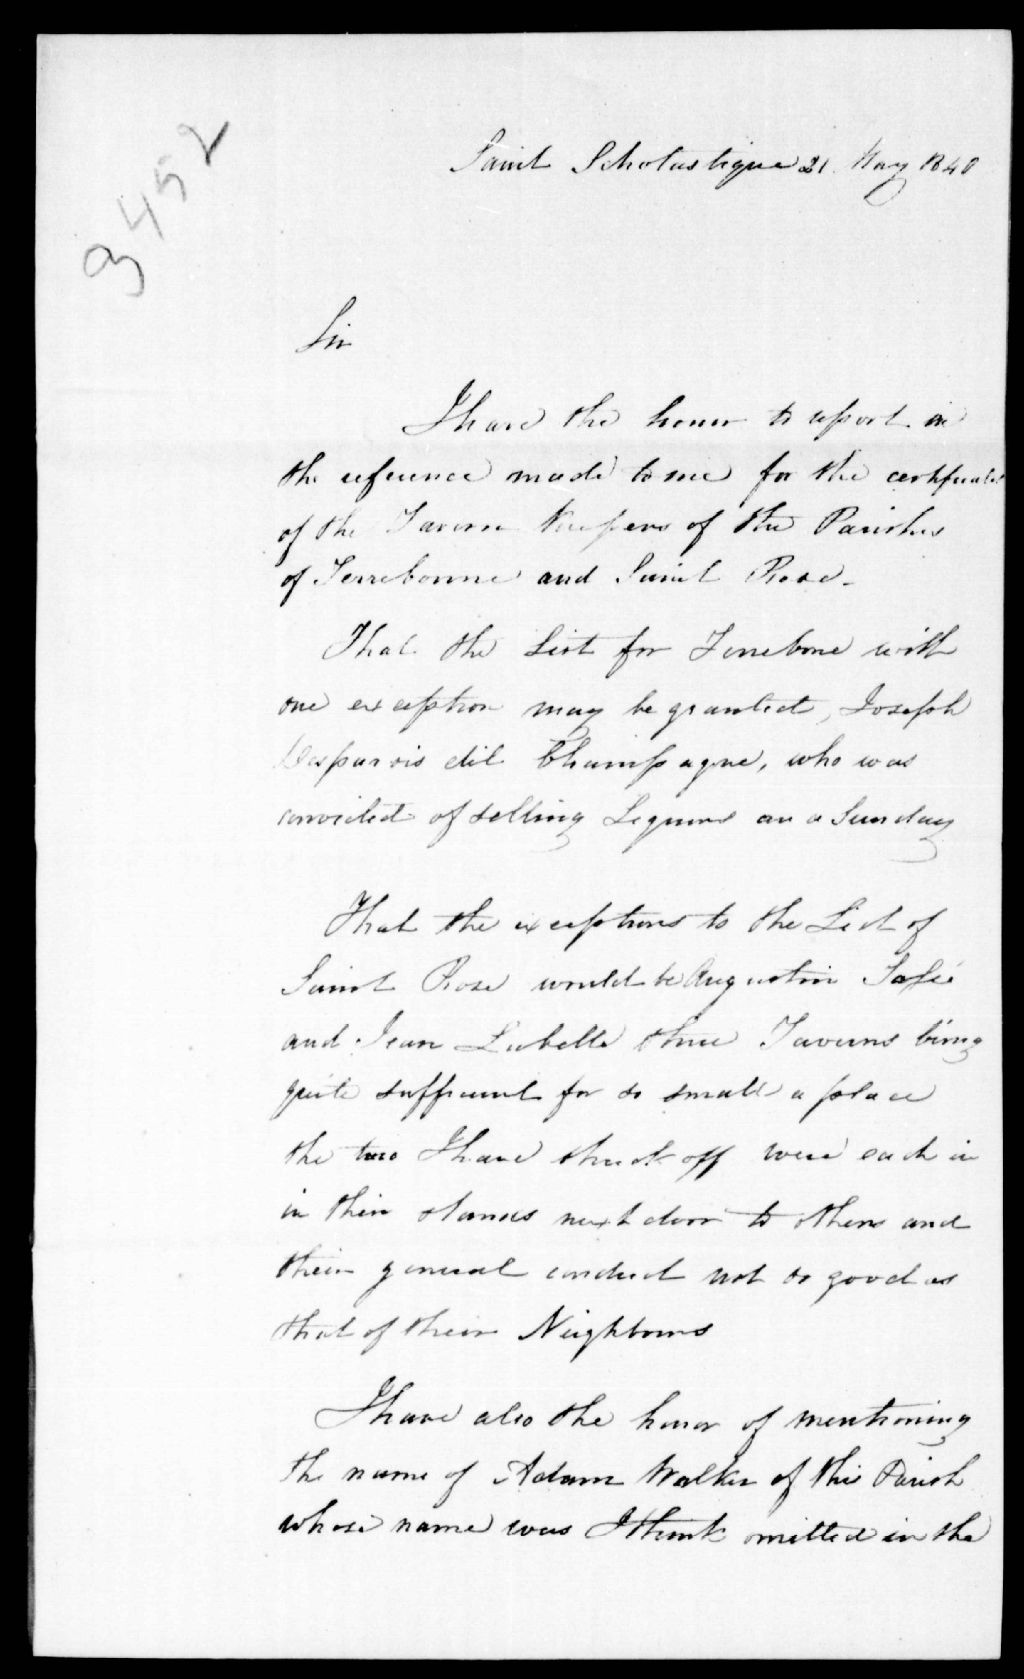 3452
Saint Scholastique 21 May 1840
Sir
I have the honor to report in
the reference made to me for the certificates
of the Tavern Keepers of the Parishes
of Terrebonne and Saint Rose -
That the List for Terrebone with
one exception may be granted, Joseph
Desparois dit Champagne, who was
convicted of selling Liquors on a Sunday
That the exceptions to the List of
Saint Rose would be Augustin
and Jean Labelle three Taverns being
quite sufficient for so small a place
the two I have struck off were each in
in their stands next door to others and
their general conduct not so good as
that of their Neighbours
I have also the honor of mentioning
the name of Adam Walker of this Parish
whose name was I think omitted in the